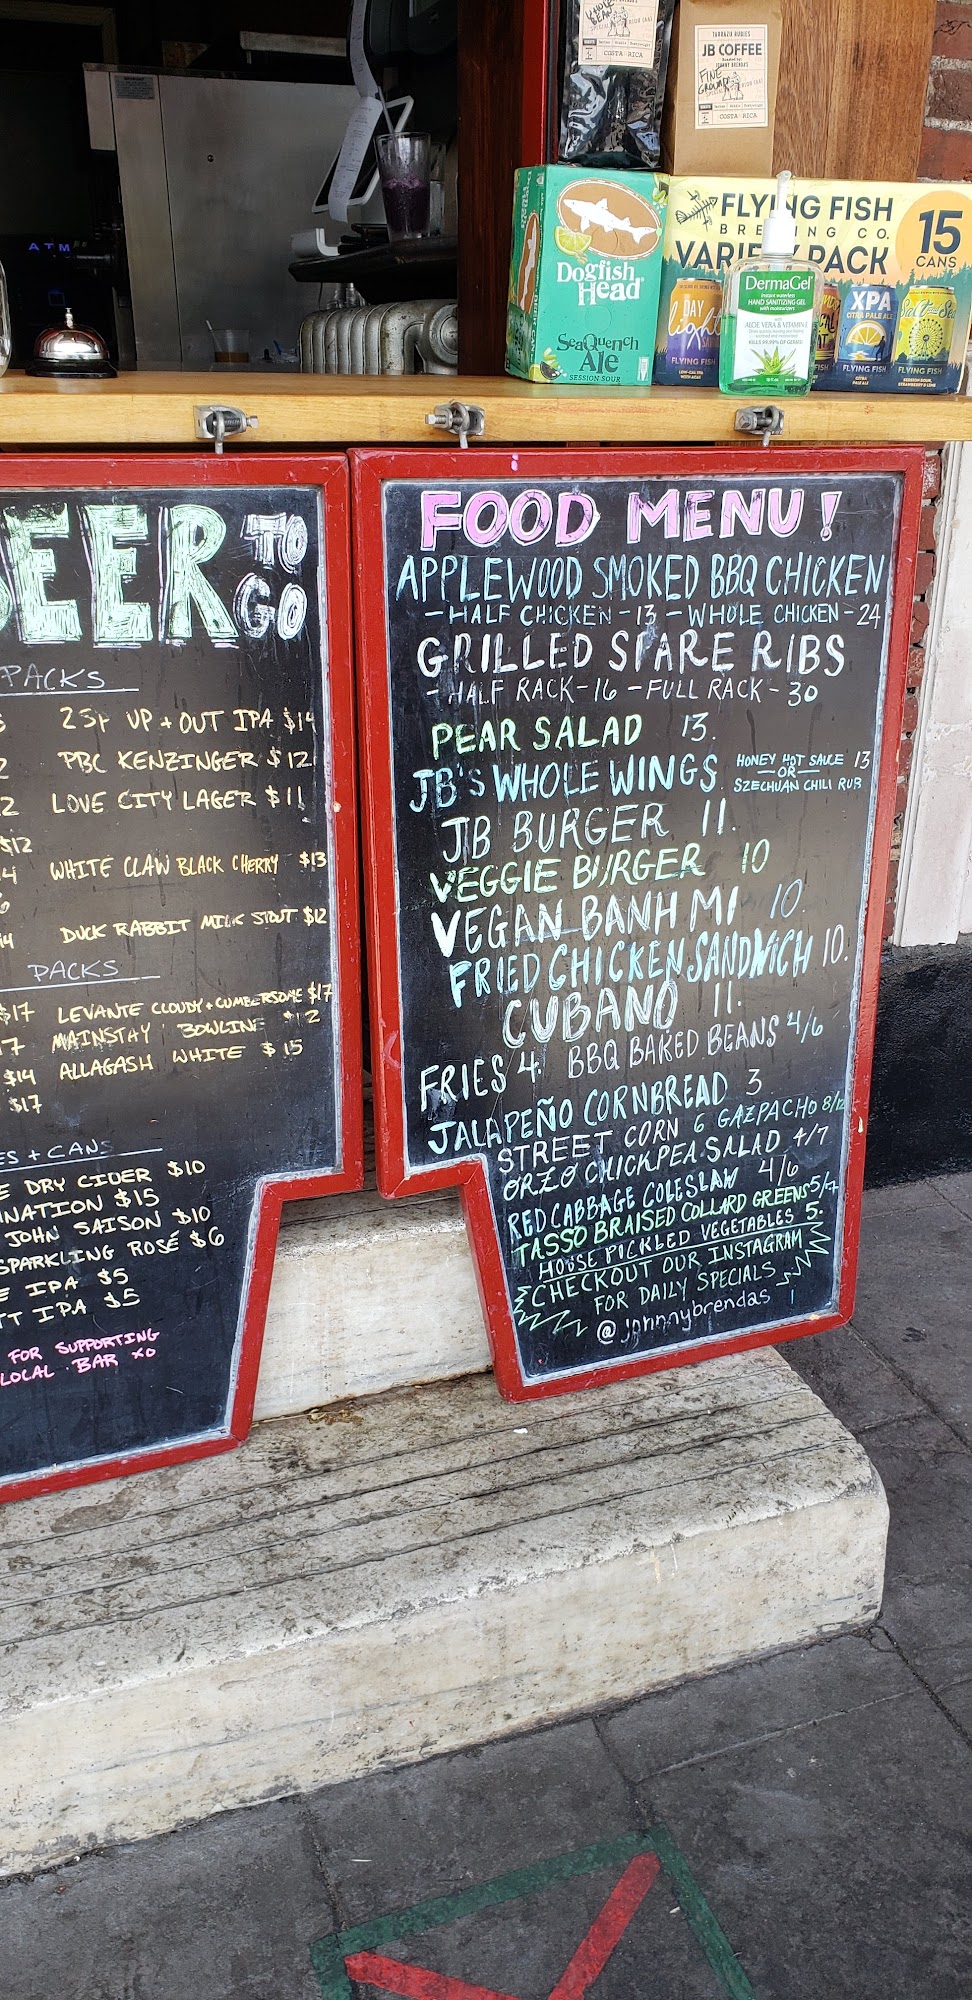 ATM
WHOLE
BEAN
COSTA RICA
TARRAZU RUBIES
JB COFFEE
Roasted by:
JOHNNY BRENDA'S
FINE
GROUND
COSTA RICA
Dogfish
Head
SeaQuench
Ale
SESSION SOUR
FLYING FISH
BREWING CO.
VARIETY PACK
15
CANS
DAY
light
FLYING FISH
XPA
CITRA PALE ALE
FLYING FISH
Salt & Sea
FLYING FISH
DermaGel
HAND SANITIZING GEL
ALOE VERA & VITAMIN E
KILLS 99.99% OF GERMS
BEER TO
GO
PACKS
25+ UP + OUT IPA $14
PBC KENZINGER $12
LOVE CITY LAGER $11
$12
WHITE CLAW BLACK CHERRY $13
DUCK RABBIT MILK STOUT $12
PACKS
$17 LEVANTE CLOUDY + CUMBERSOME $17
MAINSTAY BOWLINE $12
$14 ALLAGASH WHITE $15
$17
ES + CANS
E DRY CIDER $10
NATION $15
JOHN SAISON $10
SPARKLING ROSÉ $6
E IPA $5
TT IPA $5
FOR SUPPORTING
LOCAL BAR XO
FOOD MENU!
APPLEWOOD SMOKED BBQ CHICKEN
- HALF CHICKEN - 13 - WHOLE CHICKEN - 24
GRILLED SPARE RIBS
- HALF RACK - 16 - FULL RACK - 30
PEAR SALAD 13.
JB'S WHOLE WINGS HONEY HOT SAUCE 13
- OR -
SZECHUAN CHILI RUB
JB BURGER 11.
VEGGIE BURGER 10
VEGAN BANH MI 10.
FRIED CHICKEN SANDWICH 10.
CUBANO 11.
FRIES 4. BBQ BAKED BEANS 4/6
JALAPEÑO CORNBREAD 3
STREET CORN 6 GAZPACHO 8/12
ORZO CHICKPEA SALAD 4/7
RED CABBAGE COLESLAW 4/6
TASSO BRAISED COLLARD GREENS 5/7
HOUSE PICKLED VEGETABLES 5.
CHECKOUT OUR INSTAGRAM
FOR DAILY SPECIALS
@johnnybrendas!